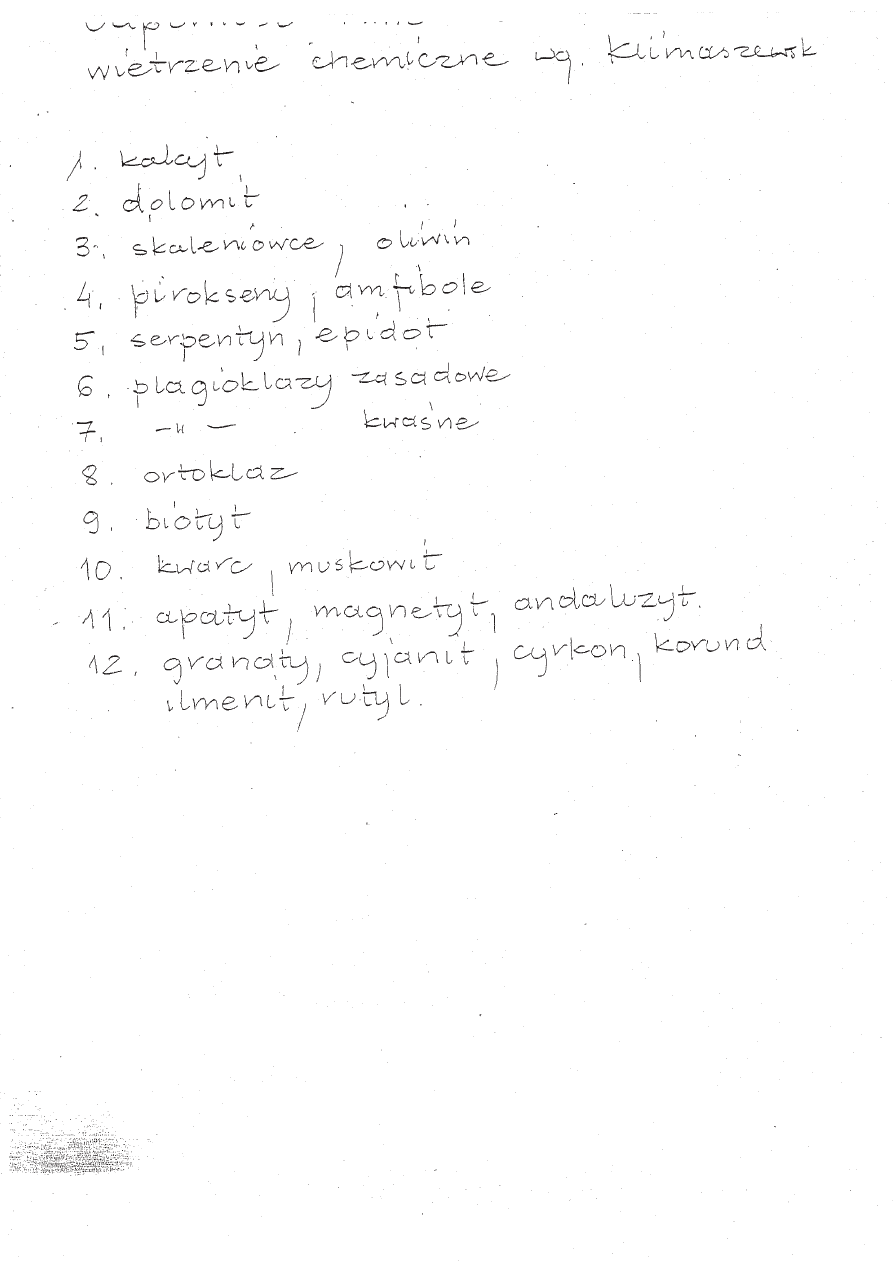 wietrzenie chemiczne wg. Klimaszewsk
1. kalcyt
2. dolomit
3. skaleniowce, oliwin
4. pirokseny, amfibole
5. serpentyn, epidot
6. plagioklazy zasadowe
7. —"— kwaśne
8. ortoklaz
9. biotyt
10. kwarc, muskowit
11. apatyt, magnetyt, andaluzyt.
12. granaty, cyjanit, cyrkon, korund
ilmenit, rutyl.